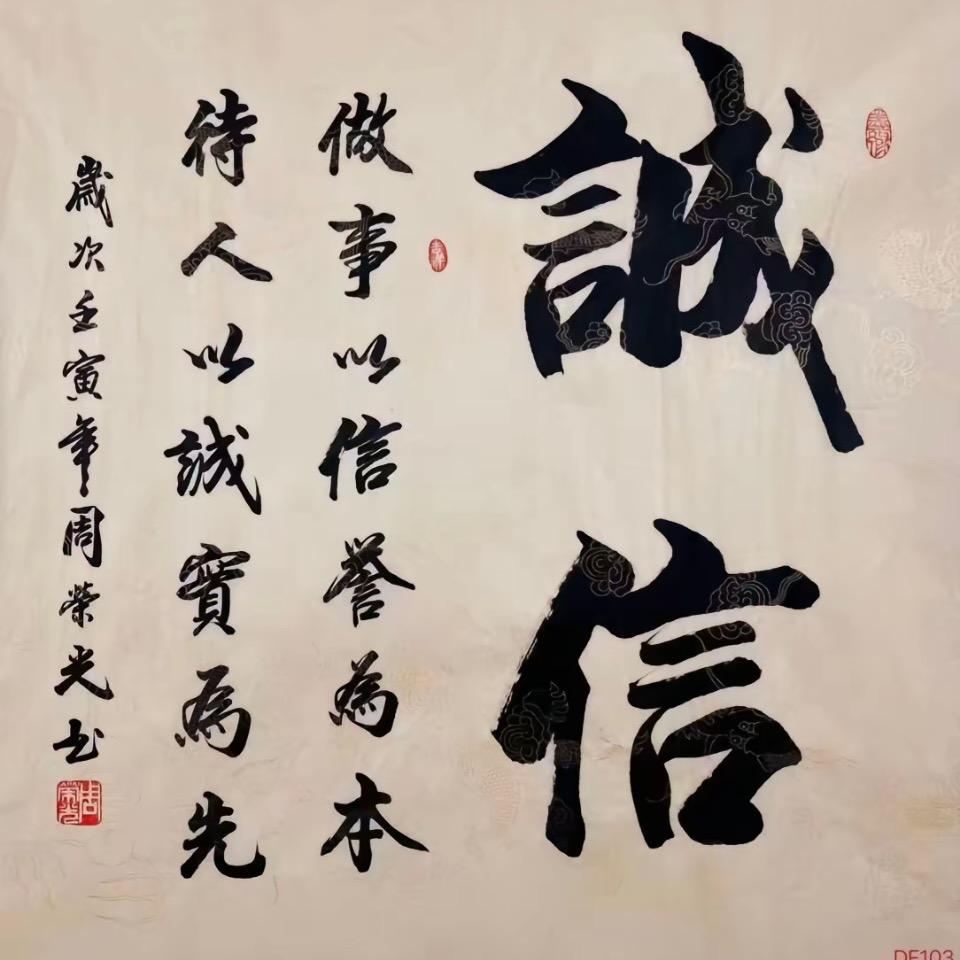 誠信
做事以信誉為本
待人以誠實為先
歲次壬寅年周榮光书
周榮光
DF103